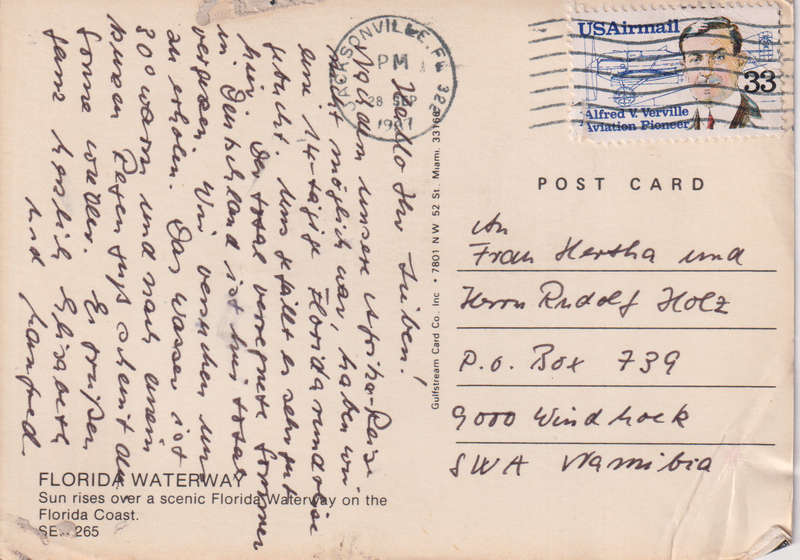 Hallo Ihr Lieben!
Nachdem unsere Afrika-Reise
nicht möglich war, haben wir
eine 14-tägige Floridarundreise
gebucht. Uns gefällt es sehr gut
hier. Der total verregnete Sommer
in Deutschland ist hier total
vergessen. Wir versuchen uns
zu erholen. Das Wasser ist
30° warm und nach einem
kurzen Regenguß scheint die
Sonne wieder. Es grüßen
ganz herzlich Elisabeth
und Manfred.
FLORIDA WATERWAY
Sun rises over a scenic Florida Waterway on the
Florida Coast.
SE 265
Gulfstream Card Co., Inc • 7801 NW 52 St., Miami, 33166
JACKSONVILLE, FL 322
PM
28 SEP
1987
USAirmail
33
Alfred V. Verville
Aviation Pioneer
POST CARD
An
Frau Hertha und
Herrn Rudolf Holz
P.O. Box 739
9000 Windhoek
SWA Namibia